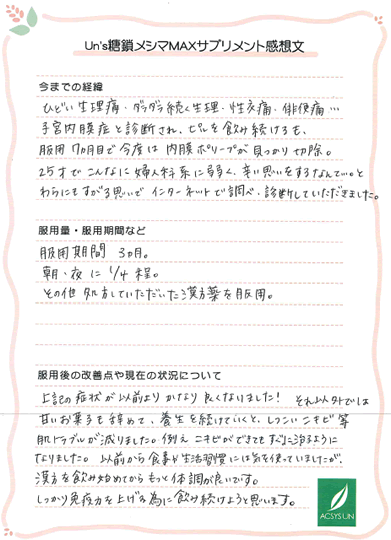 Un's糖鎖メシマMAXサプリメント感想文
今までの経緯
ひどい生理痛・ダラダラ続く生理・性交痛・排便痛…
子宮内膜症と診断され、ピルを飲み続けるも、
服用7カ月目で今度は内膜ポリープが見つかり切除。
25才でこんなに婦人科系に弱く、辛い思いをするなんて…と
わらにもすがる思いでインターネットで調べ、診断していただきました。
服用量・服用期間など
服用期間 3カ月。
朝・夜に1/4程。
その他処方していただいた漢方薬を服用。
服用後の改善点や現在の状況について
上記の症状が以前よりかなり良くなりました! それ以外では
甘いお菓子も辞めて、養生を続けていくと、しつこいニキビ等
肌トラブルが減りました。例え ニキビができてもすぐに治るように
なりました。以前から食事や生活習慣には気を使っていましたが、
漢方を飲み始めてからもっと体調が良いです。
しっかり免疫力を上げる為に飲み続けようと思います。
ACSYS UN